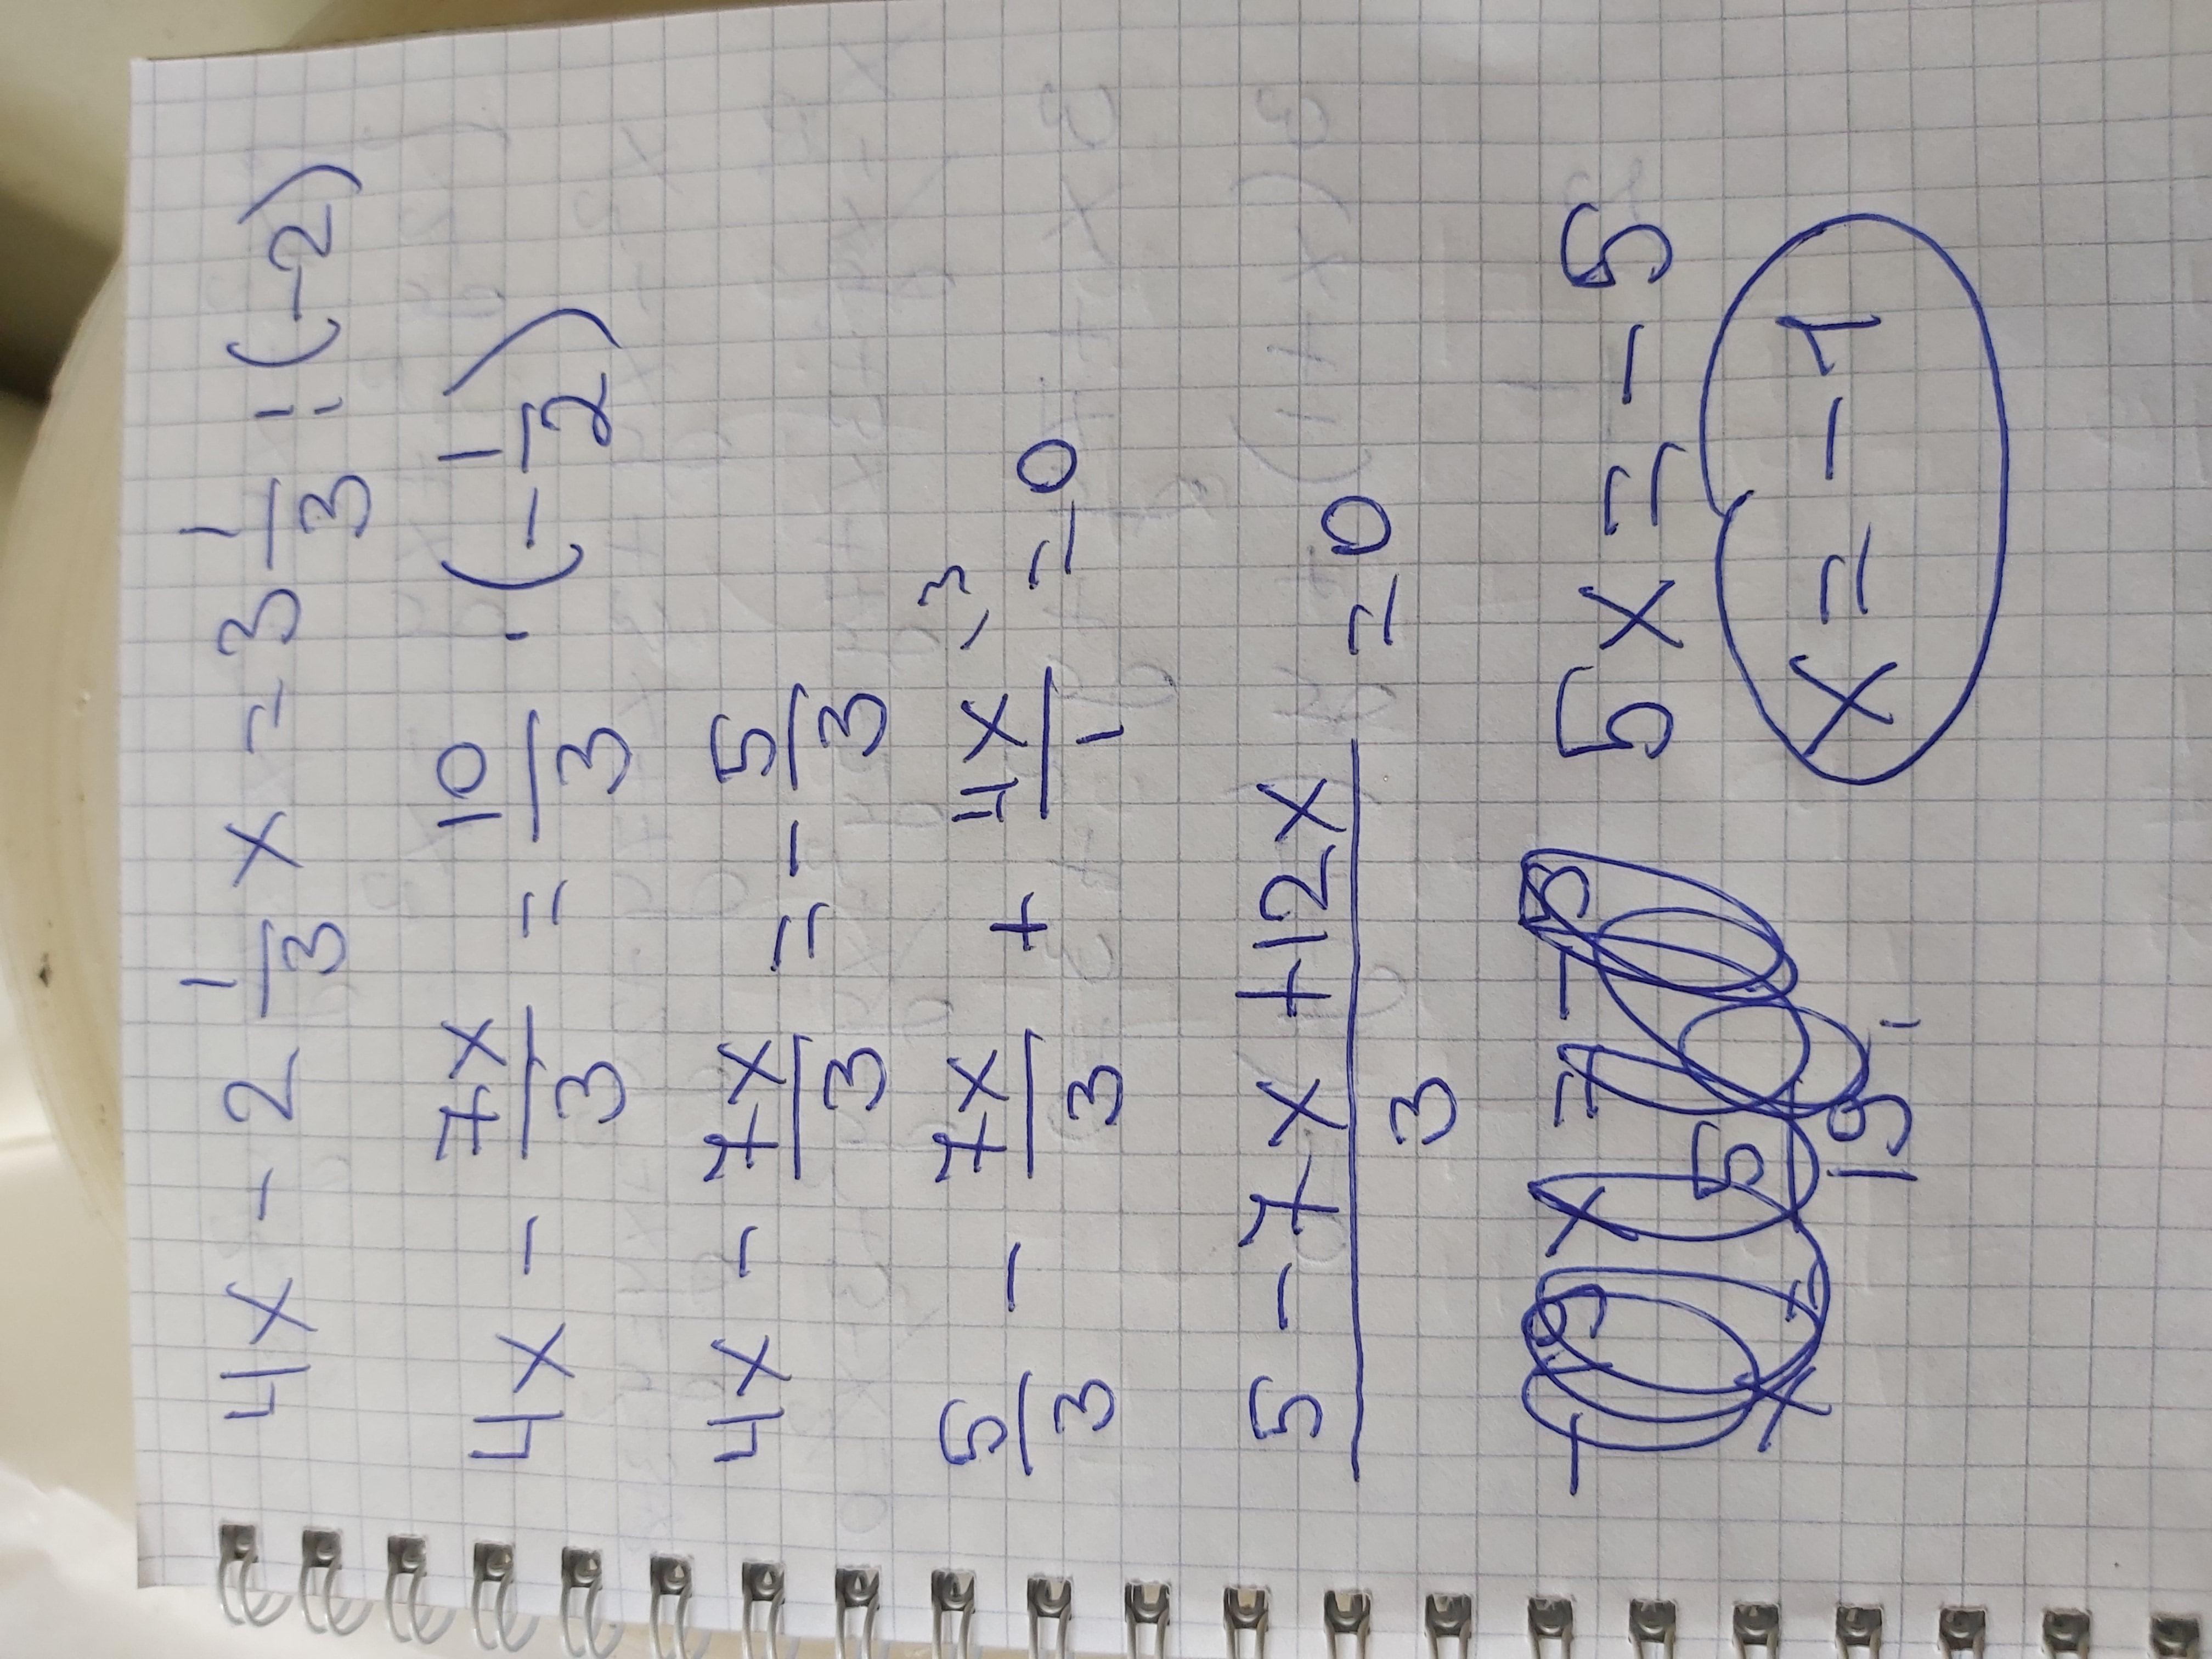 4x - 2 1/3 x = 3 1/3 : (-2)
4x - 7x/3 = 10/3 · (-1/2)
4x - 7x/3 = - 5/3
5/3 - 7x/3 + 4x/1 \3 = 0
5 - 7x + 12x / 3 = 0
5x = - 5
x = - 1